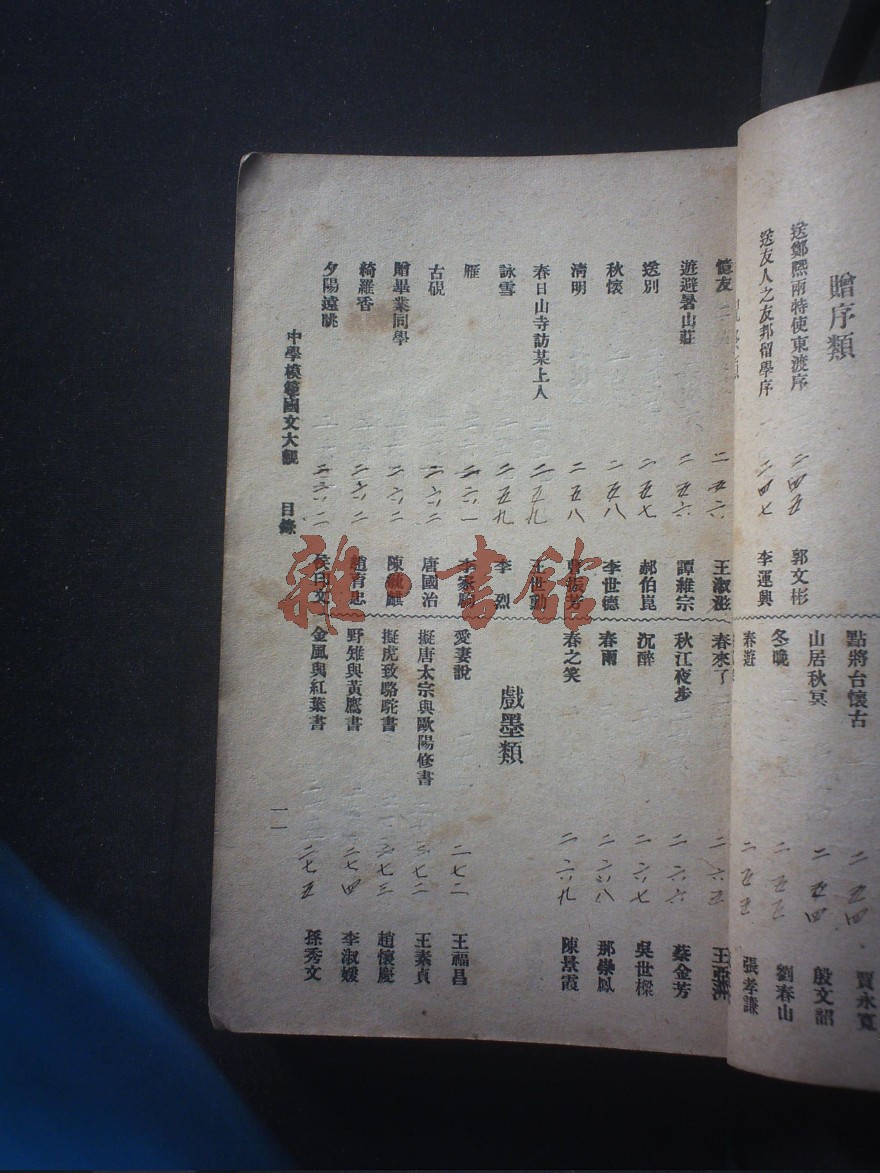 贈序類
送鄭熙雨特使東渡序 二四五 郭文彬
送友人之友邦留學序 二四七 李運興
點將台懷古 二五四 賈永寬
山居秋冥 二五四 殷文韶
冬晚 二五五 劉春山
春遊 二五五 張孝謙
憶友 二五六 王淑彭
遊避暑山莊 二五六 譚維宗
送別 二五七 郝伯崑
秋懷 二五八 李世德
清明 二五八 振芳
春日山寺訪某上人 二五九 王世勳
詠雪 二五九 李烈
雁 二六一 李家駒
古硯 二六二 唐國治
贈畢業同學 二六二 陳
綺羅香 二六二 趙育忠
夕陽遠眺 二六二 侯印文
春來了 二六五 王亞洲
秋江夜步 二六六 蔡金芳
沉醉 二六七 吳世樑
春雨 二六八 那崇鳳
春之笑 二六九 陳景霞
戲墨類
愛妻說 二七二 王福昌
擬唐太宗與歐陽修書 二七二 王素貞
擬虎致駱駝書 二七三 趙懷慶
野雉與黃鷹書 二七四 李淑媛
金風與紅葉書 二七五 孫秀文
中學模範國文大觀 目錄
一一
雜·書館